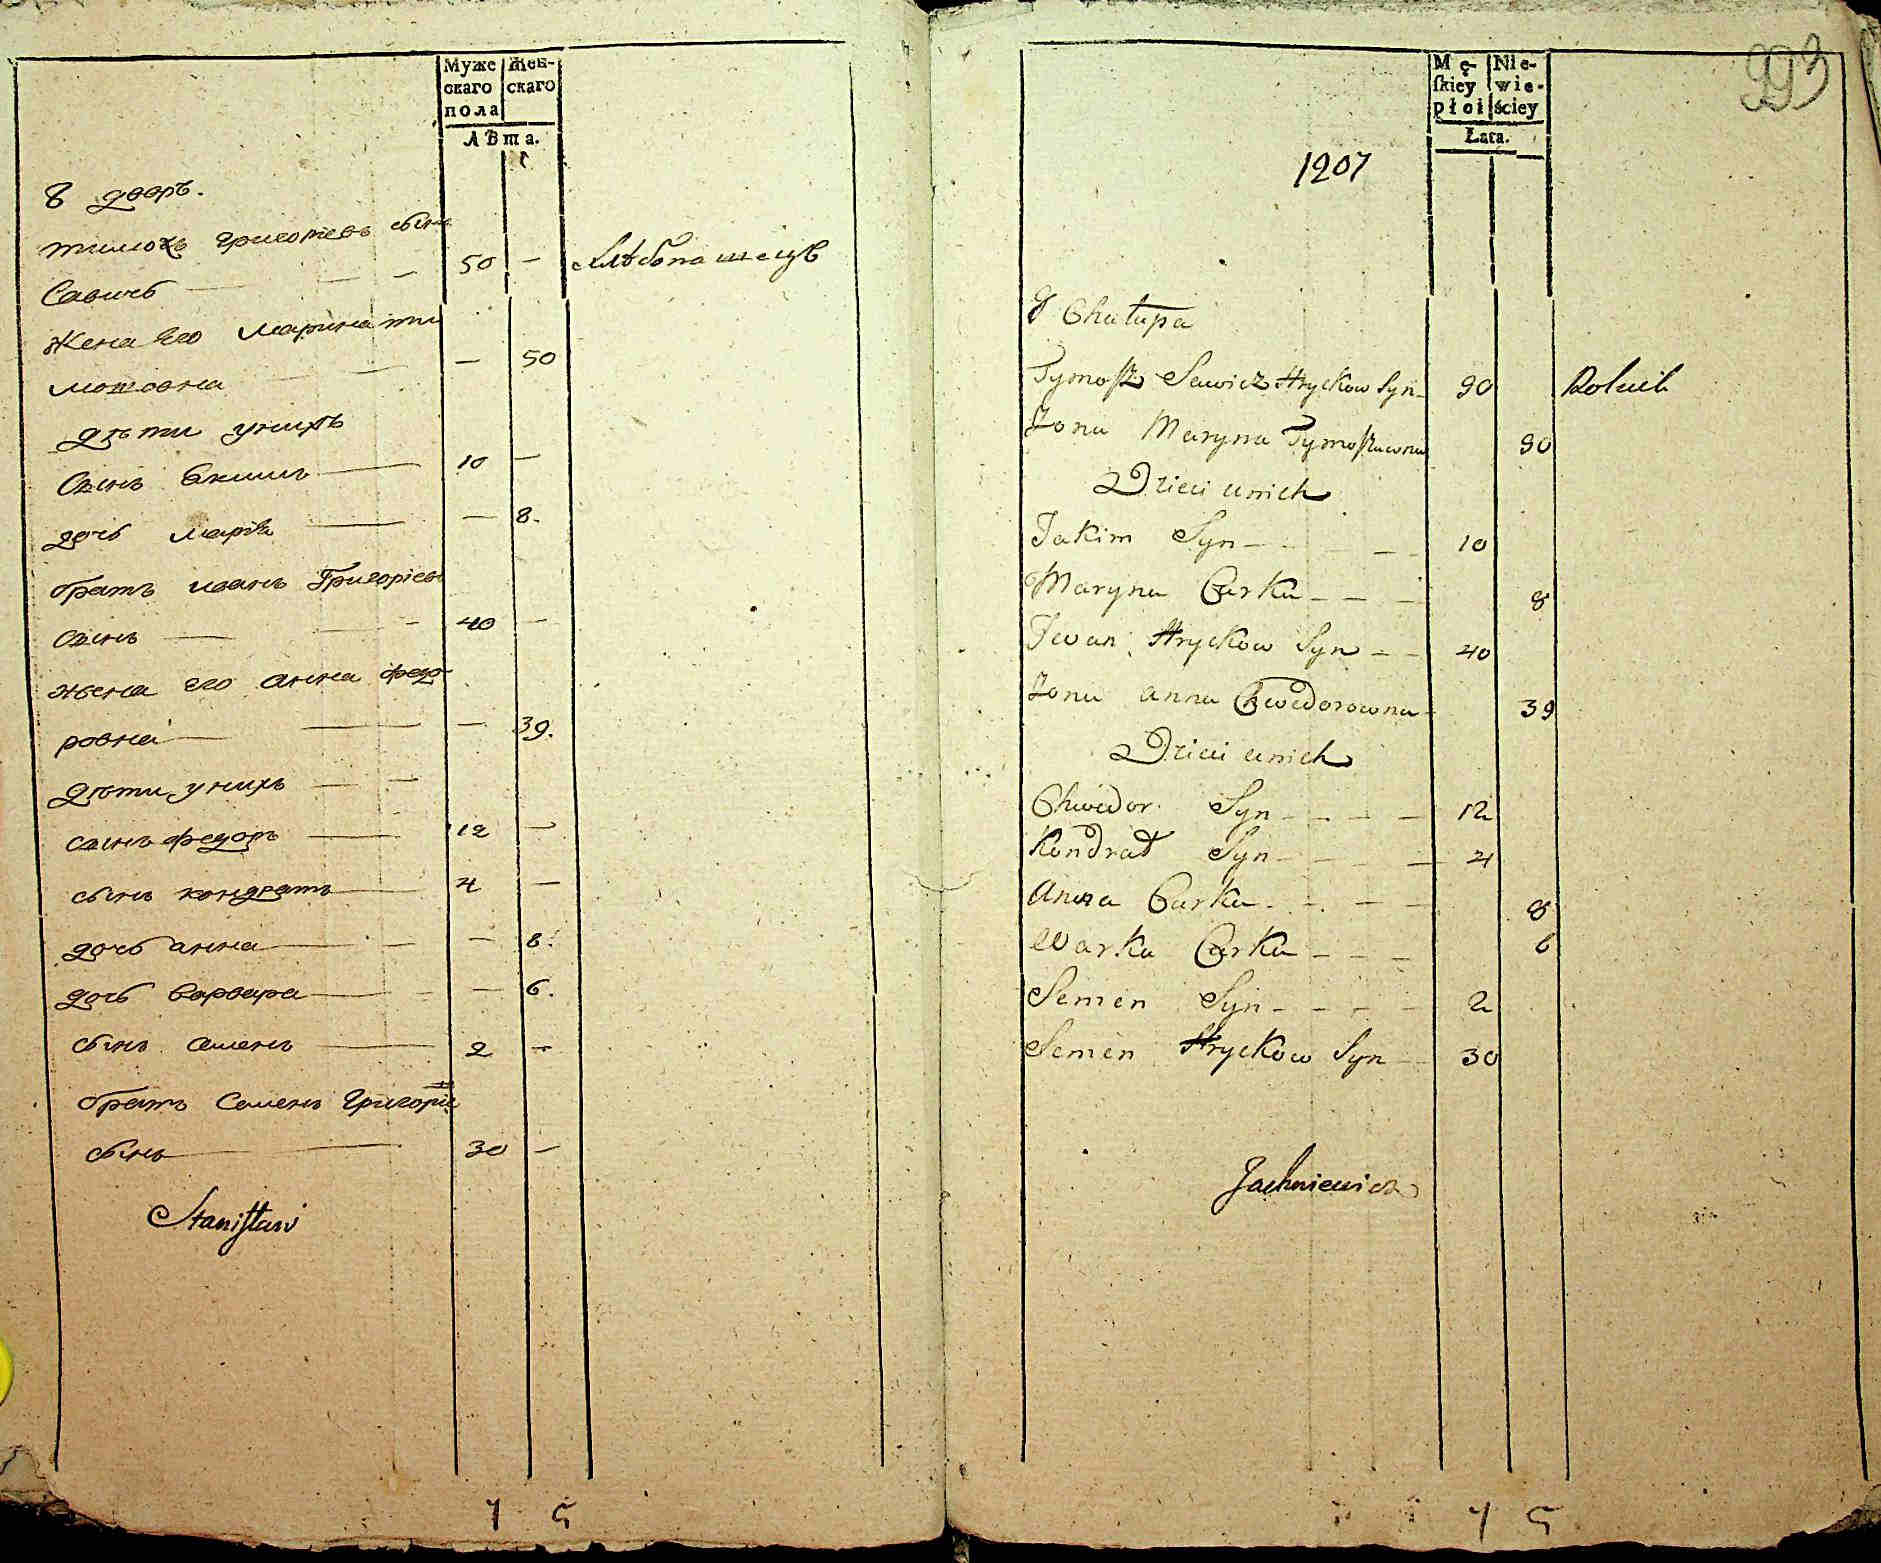 Муже
скаго
пола
Жен-
скаго
Лѣта.
8 дворъ.
тимохъ григориевъ сынъ
Савичь — — — 50 —
хлѣбопашецъ
Жена его Марина ти
мошовна — — — 50
дѣти унихъ
Сынъ Екимъ — 10 —
дочь марія — — 8.
братъ иванъ Григоріевъ
сынъ — — — 40 —
жена его анна федо-
ровна — — — 39.
дѣти унихъ — —
сынъ федоръ — 12 —
сынъ кондратъ — 4 —
дочь анна — — — 8.
дочь варвара — — — 6.
сынъ семенъ — 2 —
братъ Семенъ Григорие
сынъ — — 30 —
Stanisław
7 5
293
Mę-
ſkiey
płci
Nie-
wie-
ściey
Lata.
1207
8 Chałupa
Tymoſz Sawicz Hryckow Syn 90
Rolnik
Żona Maryna Tymoſzuwna 90
Dzieci unich
Jakim Syn — — — 10
Maryna Curka — — — 8
Iwan Hryckow Syn — — 40
Żona anna Chwedorowna — 39
Dzieci unich
Chwedor Syn — — — — 12
Kondrat Syn — — — 4
Anna Curka — — — — 8
Warka Curka — — — 6
Semen Syn — — — — 2
Semen Hryckow Syn — 30
Jachniewicz
7 5